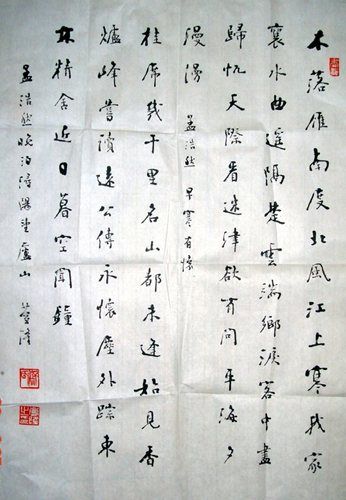 木落雁南度北風江上寒我家
襄水曲遙隔楚雲端鄉淚客中盡
歸帆天際看迷津欲有問平海夕
漫漫 孟浩然 早寒有懷
挂席幾千里名山都未逢始見香
爐峰嘗讀遠公傳永懷塵外蹤東
林精舍近日暮空聞鐘
孟浩然晚泊潯陽望廬山